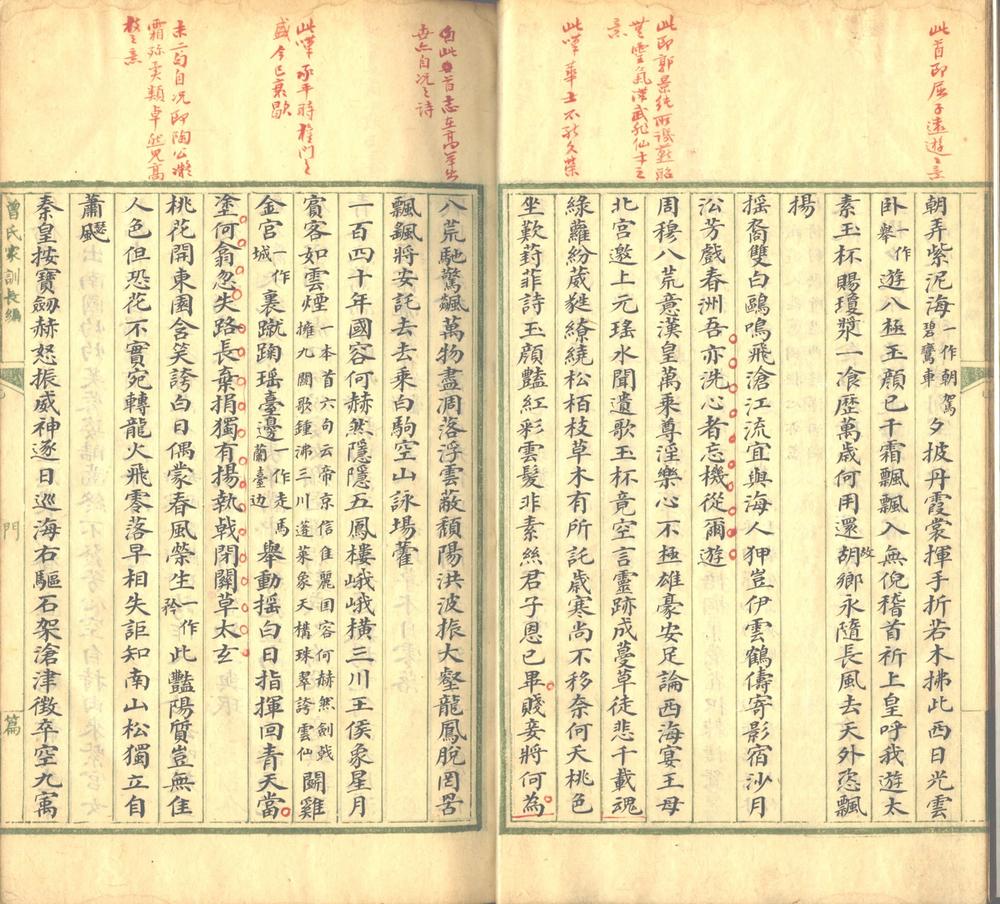 此首即屈子遠遊之意
此即郭景純所譏燕昭
無靈氣漢武非仙才之
意
此嘆華士不能久榮
朝弄紫泥海一作朝駕碧鸞車夕披丹霞裳揮手折若木拂此西日光雲
卧一作舉遊八極玉顏已千霜飄飄入無倪稽首祈上皇呼我遊太
素玉杯賜瓊漿一飡歷萬歲何用還胡故鄉永隨長風去天外恣飄
揚
搖裔雙白鷗鳴飛滄江流宜與海人狎豈伊雲鶴儔寄影宿沙月
沿芳戲春洲吾亦洗心者忘機從爾遊
周穆八荒意漢皇萬乘尊淫樂心不極雄豪安足論西海宴王母
北宮邀上元瑤水聞遺歌玉杯竟空言靈跡成蔓草徒悲千載魂
綠蘿紛葳蕤繚繞松栢枝草木有所託歲寒尚不移奈何夭桃色
坐歎葑菲詩玉顏豔紅彩雲髮非素絲君子恩已畢賤妾將何為
自此首志在高舉出
世亦自況之詩
此嘆承平時權門之
盛今已衰歇
末二句自況即陶公凝
霜殄異類卓然見高
枝之意
八荒馳驚飆萬物盡凋落浮雲蔽頹陽洪波振大壑龍鳳脫罔罟
飄飄將安託去去乘白駒空山詠場藿
一百四十年國容何赫然隱隱五鳳樓峨峨橫三川王侯象星月
賓客如雲煙一本首六句云帝京信佳麗国容何赫然劍戟擁九關歌鐘沸三川蓬萊象天構珠翠誇雲仙鬭雞
金宮一作城裏蹴踘瑤臺邊一作走馬蘭臺边舉動搖白日指揮回青天當
塗何翕忽失路長棄捐獨有揚執戟閉關草太玄
桃花開東園含笑誇白日偶蒙春風榮生一作矜此豔陽質豈無佳
人色但恐花不實宛轉龍火飛零落早相失詎知南山松獨立自
蕭飋
秦皇按寶劍赫怒振威神逐日巡海右驅石架滄津徵卒空九寓
曾氏家訓長編
門
篇